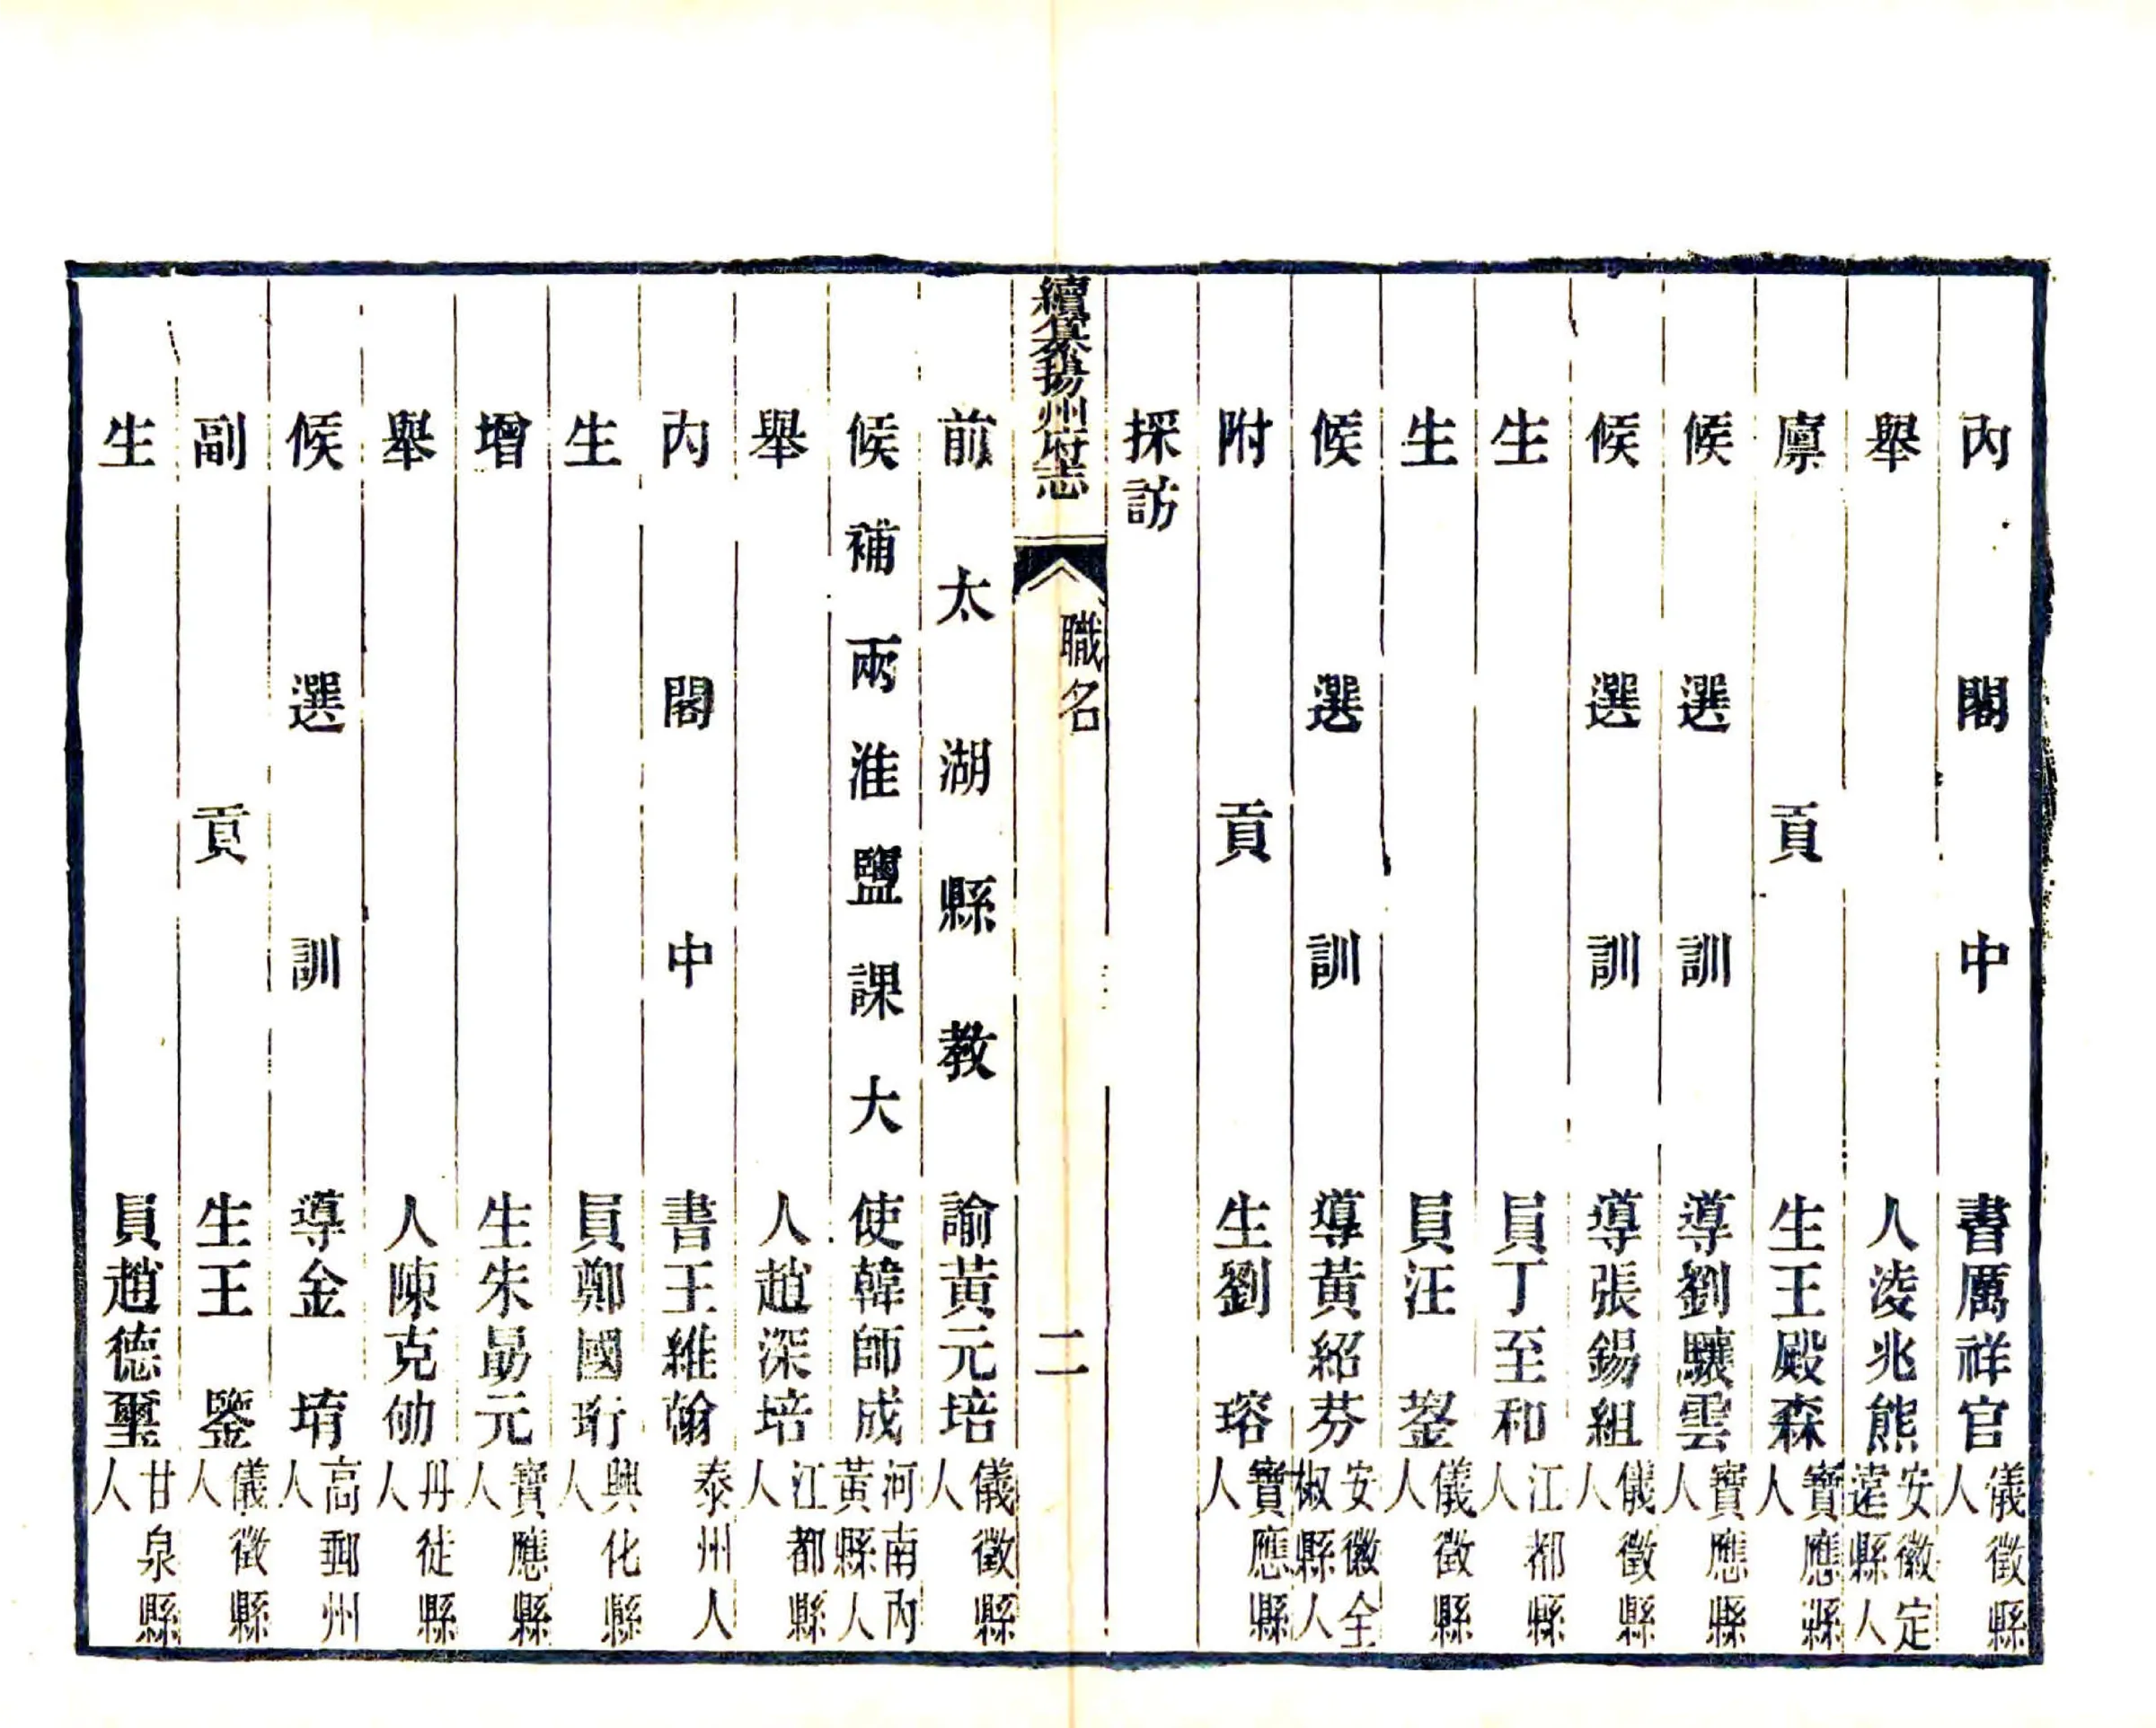 內閣中書厲祥官儀徵縣人
舉人淩兆熊安徽定遠縣人
廩貢生王殿森寶應縣人
候選訓導劉驤雲寶應縣人
候選訓導張錫組儀徵縣人
生員丁至和江都縣人
生員汪鋆儀徵縣人
候選訓導黃紹芬安徽全椒縣人
附貢生劉瑢寶應縣人
採訪
續纂揚州府志
職名
二
前太湖縣教諭黃元培儀徵縣人
候補兩淮鹽課大使韓師成河南內黃縣人
舉人趙深培江都縣人
內閣中書王維翰泰州人
生員鄭國珩興化縣人
增生朱勗元寶應縣人
舉人陳克劬丹徒縣人
候選訓導金堉高郵州人
副貢生王鑒儀徵縣人
生員趙德璽甘泉縣人